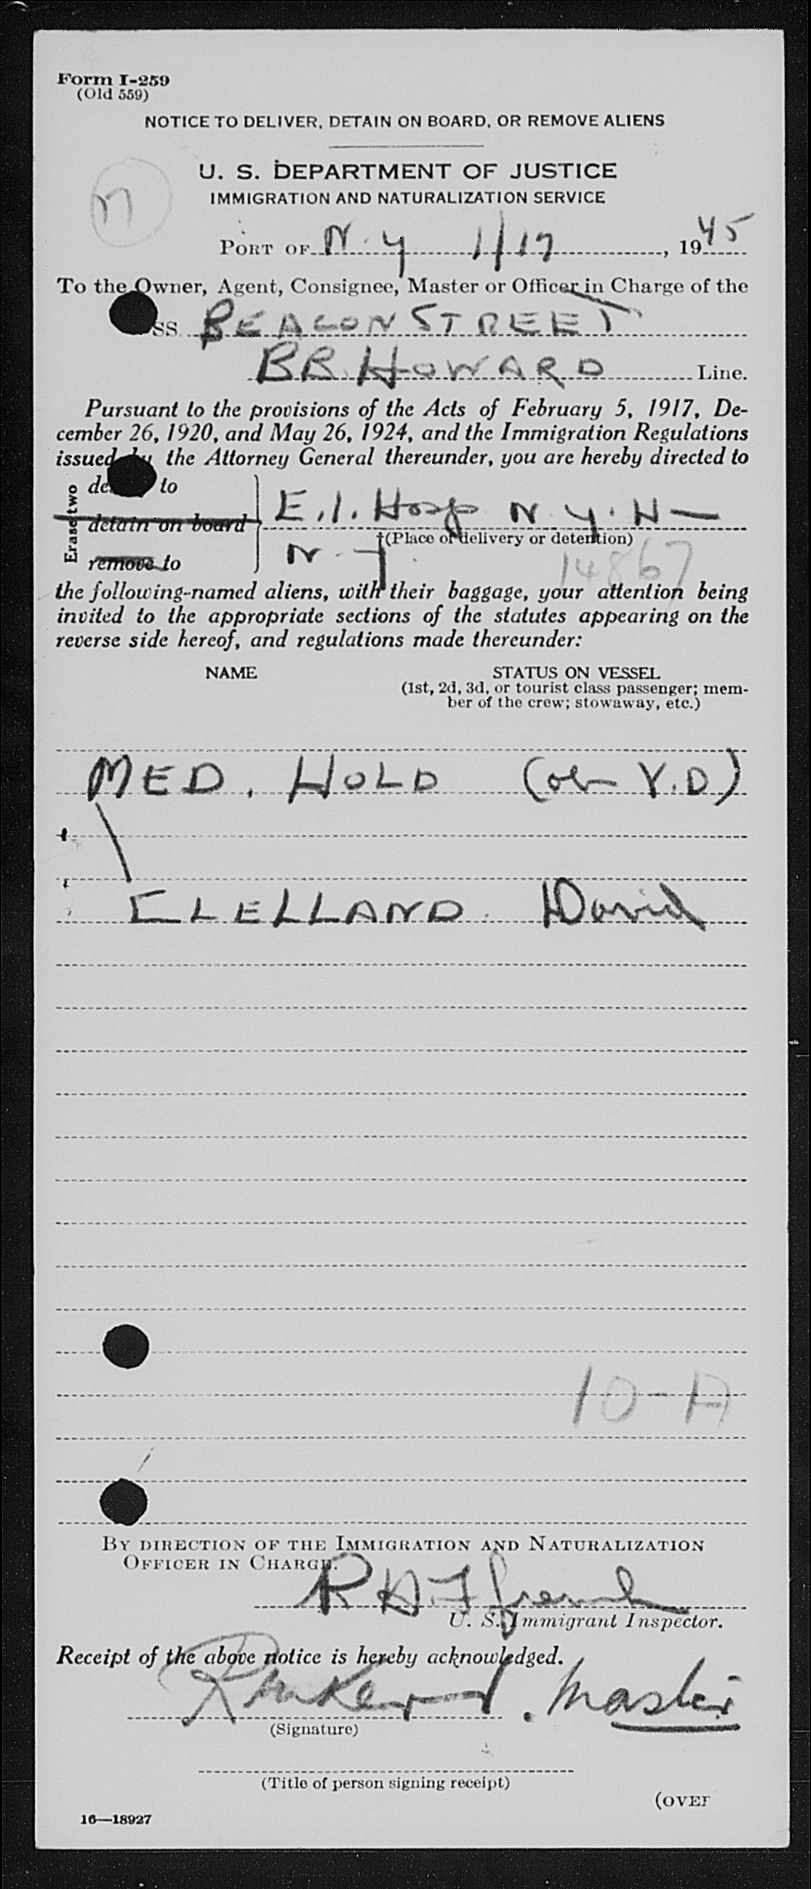 Form I-259
(Old 559)
NOTICE TO DELIVER, DETAIN ON BOARD, OR REMOVE ALIENS
U. S. DEPARTMENT OF JUSTICE
IMMIGRATION AND NATURALIZATION SERVICE
n
PORT OF N.Y 1/17, 1945
To the Owner, Agent, Consignee, Master or Officer in Charge of the
SS. BEACON STREET
BR. HOWARD Line.
Pursuant to the provisions of the Acts of February 5, 1917, De-
cember 26, 1920, and May 26, 1924, and the Immigration Regulations
issued by the Attorney General thereunder, you are hereby directed to
Erase two
to
detain on board
remove to
E.I. Hosp N.Y.H
(Place of delivery or detention)
N.Y
14867
the following-named aliens, with their baggage, your attention being
invited to the appropriate sections of the statutes appearing on the
reverse side hereof, and regulations made thereunder:
NAME
STATUS ON VESSEL
(1st, 2d, 3d, or tourist class passenger; mem-
ber of the crew; stowaway, etc.)
MED. HOLD (ob V.D)
CLELLAND David
10-A
BY DIRECTION OF THE IMMIGRATION AND NATURALIZATION
OFFICER IN CHARGE.
U. S. Immigrant Inspector.
Receipt of the above notice is hereby acknowledged.
Master
(Signature)
(Title of person signing receipt)
(OVER
16—18927